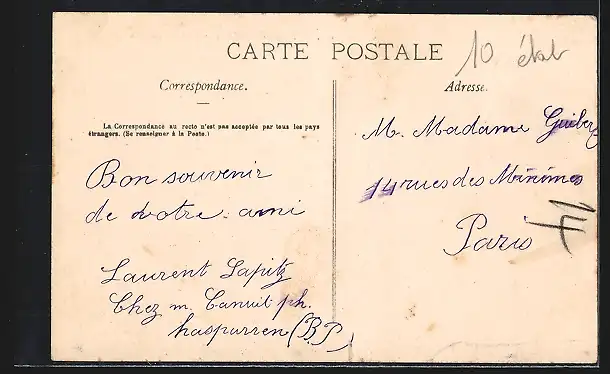 CARTE POSTALE
10 état
Correspondance.
La Correspondance au recto n'est pas acceptée par tous les pays
étrangers. (Se renseigner à la Poste.)
Bon souvenir
de votre ami
Laurent Lapitz
Chez m. Canuit ph.
hasparren (B.P.)
Adresse.
M. Madame Guibert
14 rues des Minimes
Paris